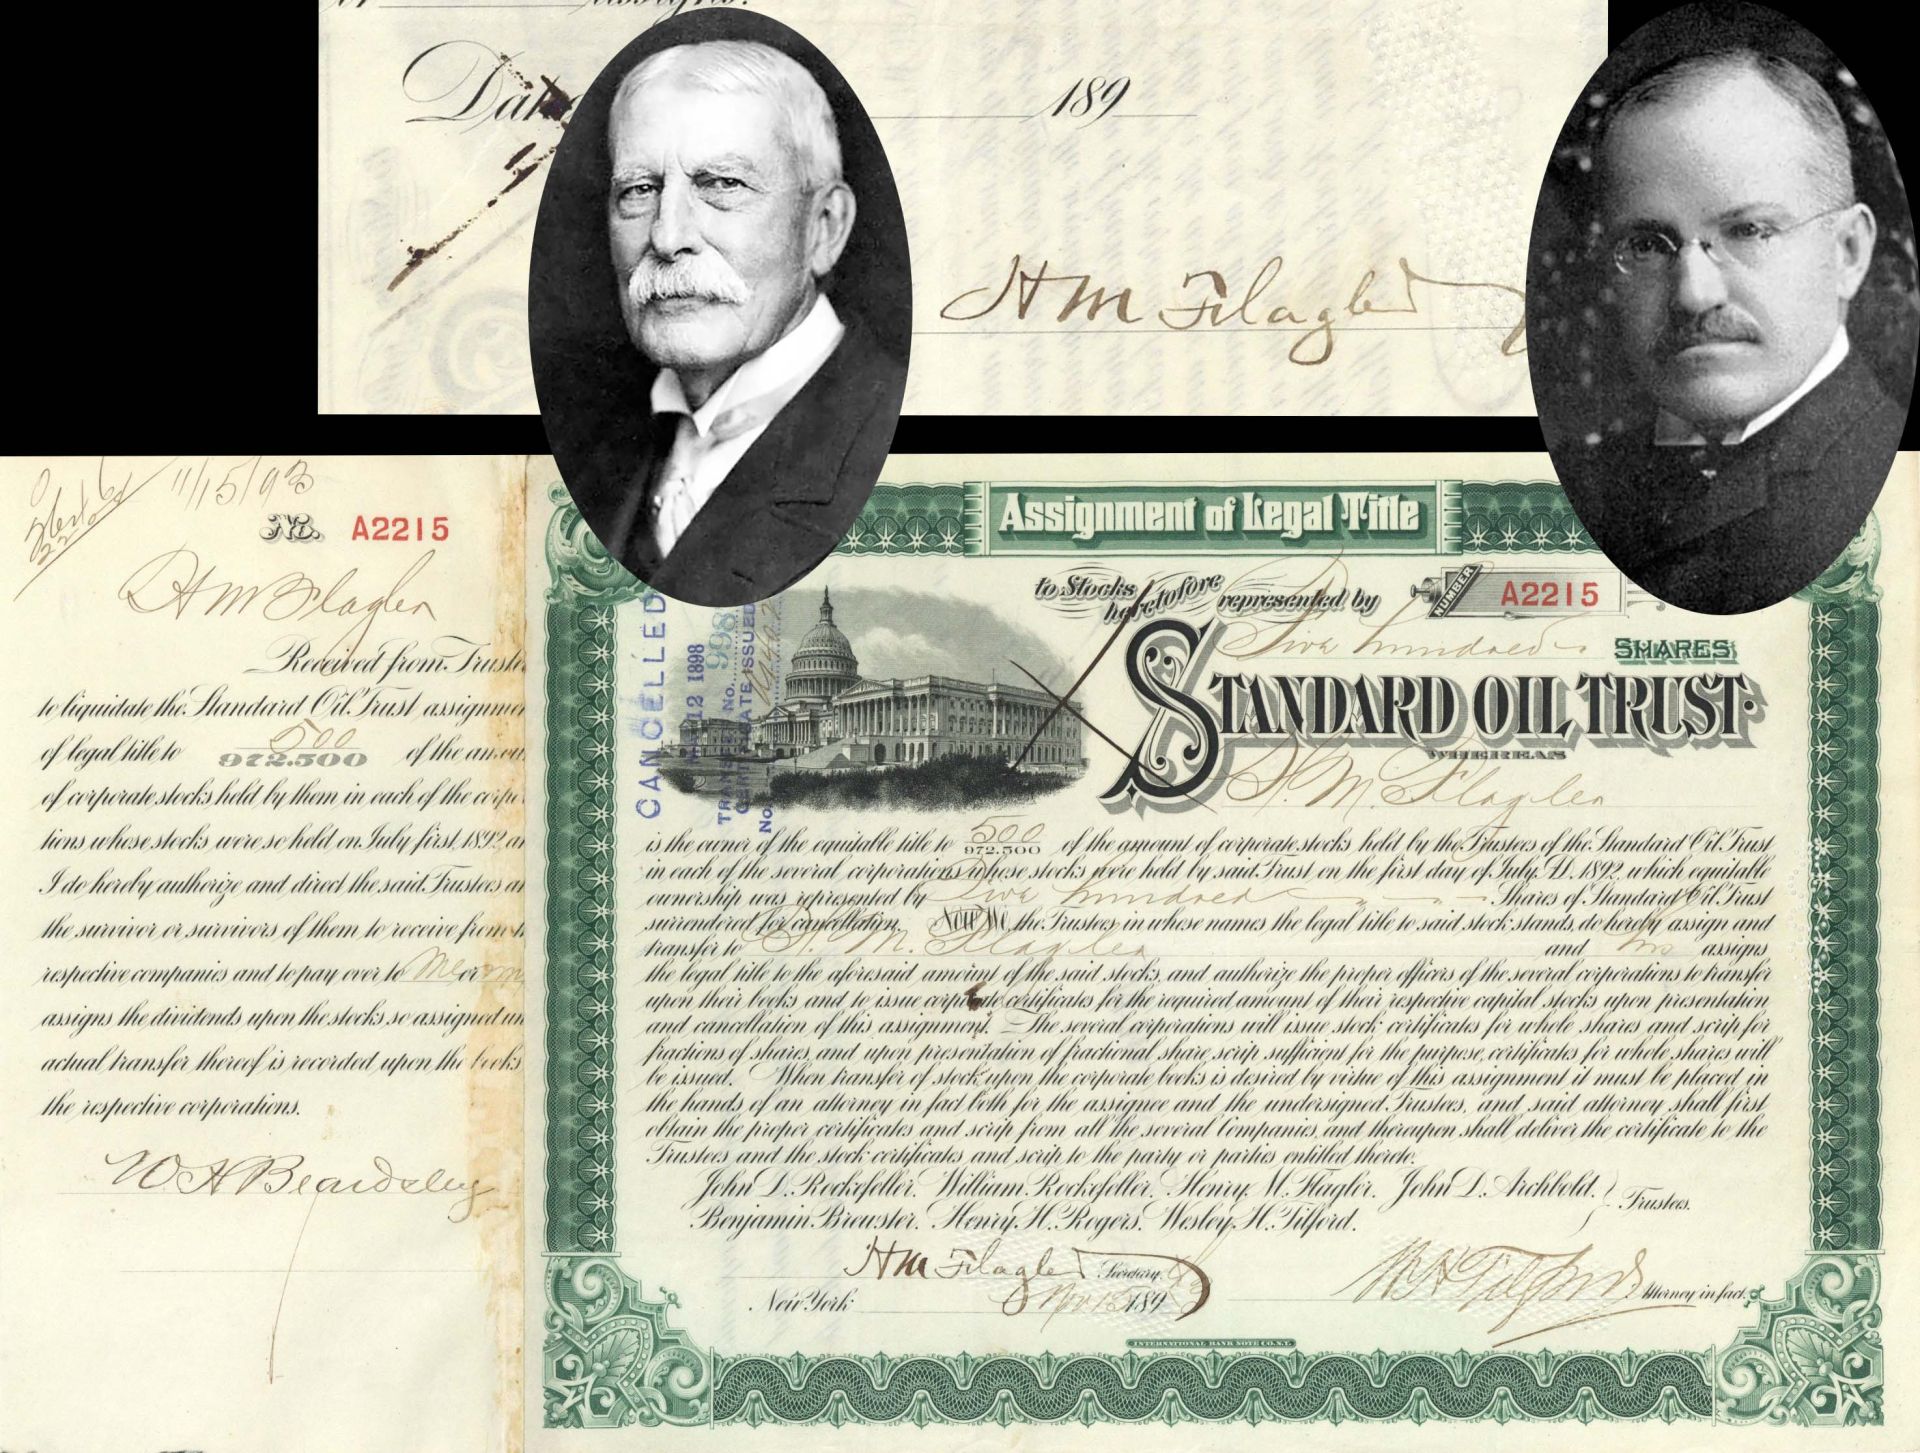 or assigns.
Dated 189
H M Flagler
11/15/93
No. A2215
H M Flagler
Received from Truste
to liquidate the Standard Oil Trust assignmen
of legal title to 500/972.500 of the amou
of corporate stocks held by them in each of the corpo
tions whose stocks were so held on July first, 1892, an
I do hereby authorize and direct the said Trustees an
the survivor or survivors of them to receive from t
respective companies and to pay over to Me or my
assigns the dividends upon the stocks so assigned un
actual transfer thereof is recorded upon the books
the respective corporations.
W H Beardsley
Assignment of Legal Title
to Stocks heretofore represented by
NUMBER A2215
Five hundred SHARES
STANDARD OIL TRUST.
WHEREAS
H. M. Flagler
is the owner of the equitable title to 500/972.500 of the amount of corporate stocks held by the Trustees of the Standard Oil Trust
in each of the several corporations whose stocks were held by said Trust on the first day of July A.D. 1892, which equitable
ownership was represented by Five hundred Shares of Standard Oil Trust
surrendered for cancellation. Now We the Trustees in whose names the legal title to said stock stands, do hereby assign and
transfer to H. M. Flagler and his assigns
the legal title to the aforesaid amount of the said stocks, and authorize the proper officers of the several corporations to transfer
upon their books and to issue corporate certificates for the required amount of their respective capital stocks upon presentation
and cancellation of this assignment. The several corporations will issue stock certificates for whole shares and scrip for
fractions of shares, and upon presentation of fractional share scrip sufficient for the purpose, certificates for whole shares will
be issued. When transfer of stock upon the corporate books is desired by virtue of this assignment it must be placed in
the hands of an attorney in fact both for the assignee and the undersigned Trustees, and said attorney shall first
obtain the proper certificates and scrip from all the several Companies, and thereupon shall deliver the certificate to the
Trustees and the stock certificates and scrip to the party or parties entitled thereto.
John D. Rockefeller. William Rockefeller. Henry M. Flagler. John D. Archbold.
Benjamin Brewster. Henry H. Rogers. Wesley H. Tilford. Trustees.
H M Flagler Secretary.
W H Tilford Attorney in fact.
New York Nov 15 1893
INTERNATIONAL BANK NOTE CO. N.Y.
CANCELLED
12 1898
TRANSFER No. 998
CERTIFICATE ISSUED
No.